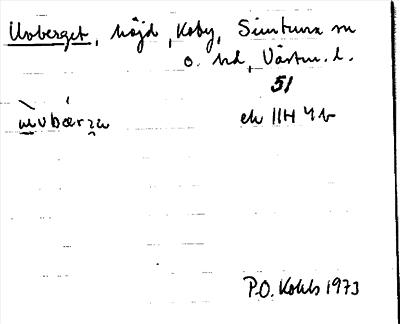 Uvberget, höjd, Kaby, Simtuna sn
o. hd, Västm. l.
51
ùvbærʒə
ek 11H 4b
P.O. Kohls 1973